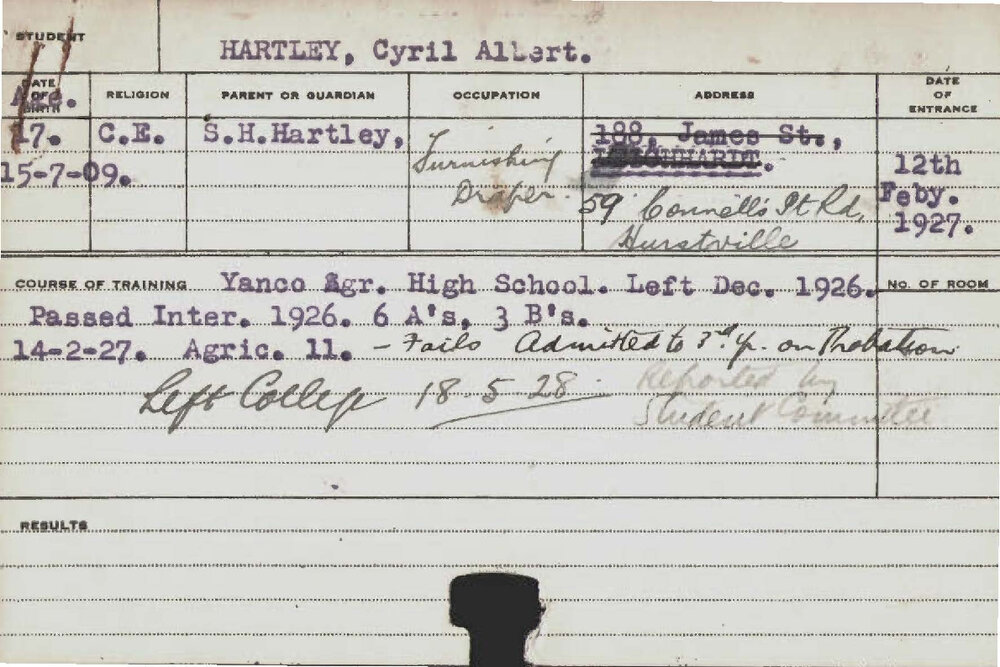 STUDENT
HARTLEY, Cyril Albert.
DATE OF BIRTH
Age.
RELIGION
PARENT OR GUARDIAN
OCCUPATION
ADDRESS
DATE OF ENTRANCE
17.
C.E.
S.H.Hartley,
Furnishing
Draper.
188, James St.,
LEICHHARDT.
15-7-09.
59 Connell's Pt Rd,
Hurstville
12th
Feby.
1927.
COURSE OF TRAINING Yanco Agr. High School. Left Dec. 1926.
NO. OF ROOM
Passed Inter. 1926. 6 A's, 3 B's.
14-2-27. Agric. 11. - Fails Admitted to 3rd yr. on Probation
Left College 18.5.28
Reported by
Student Committee
RESULTS